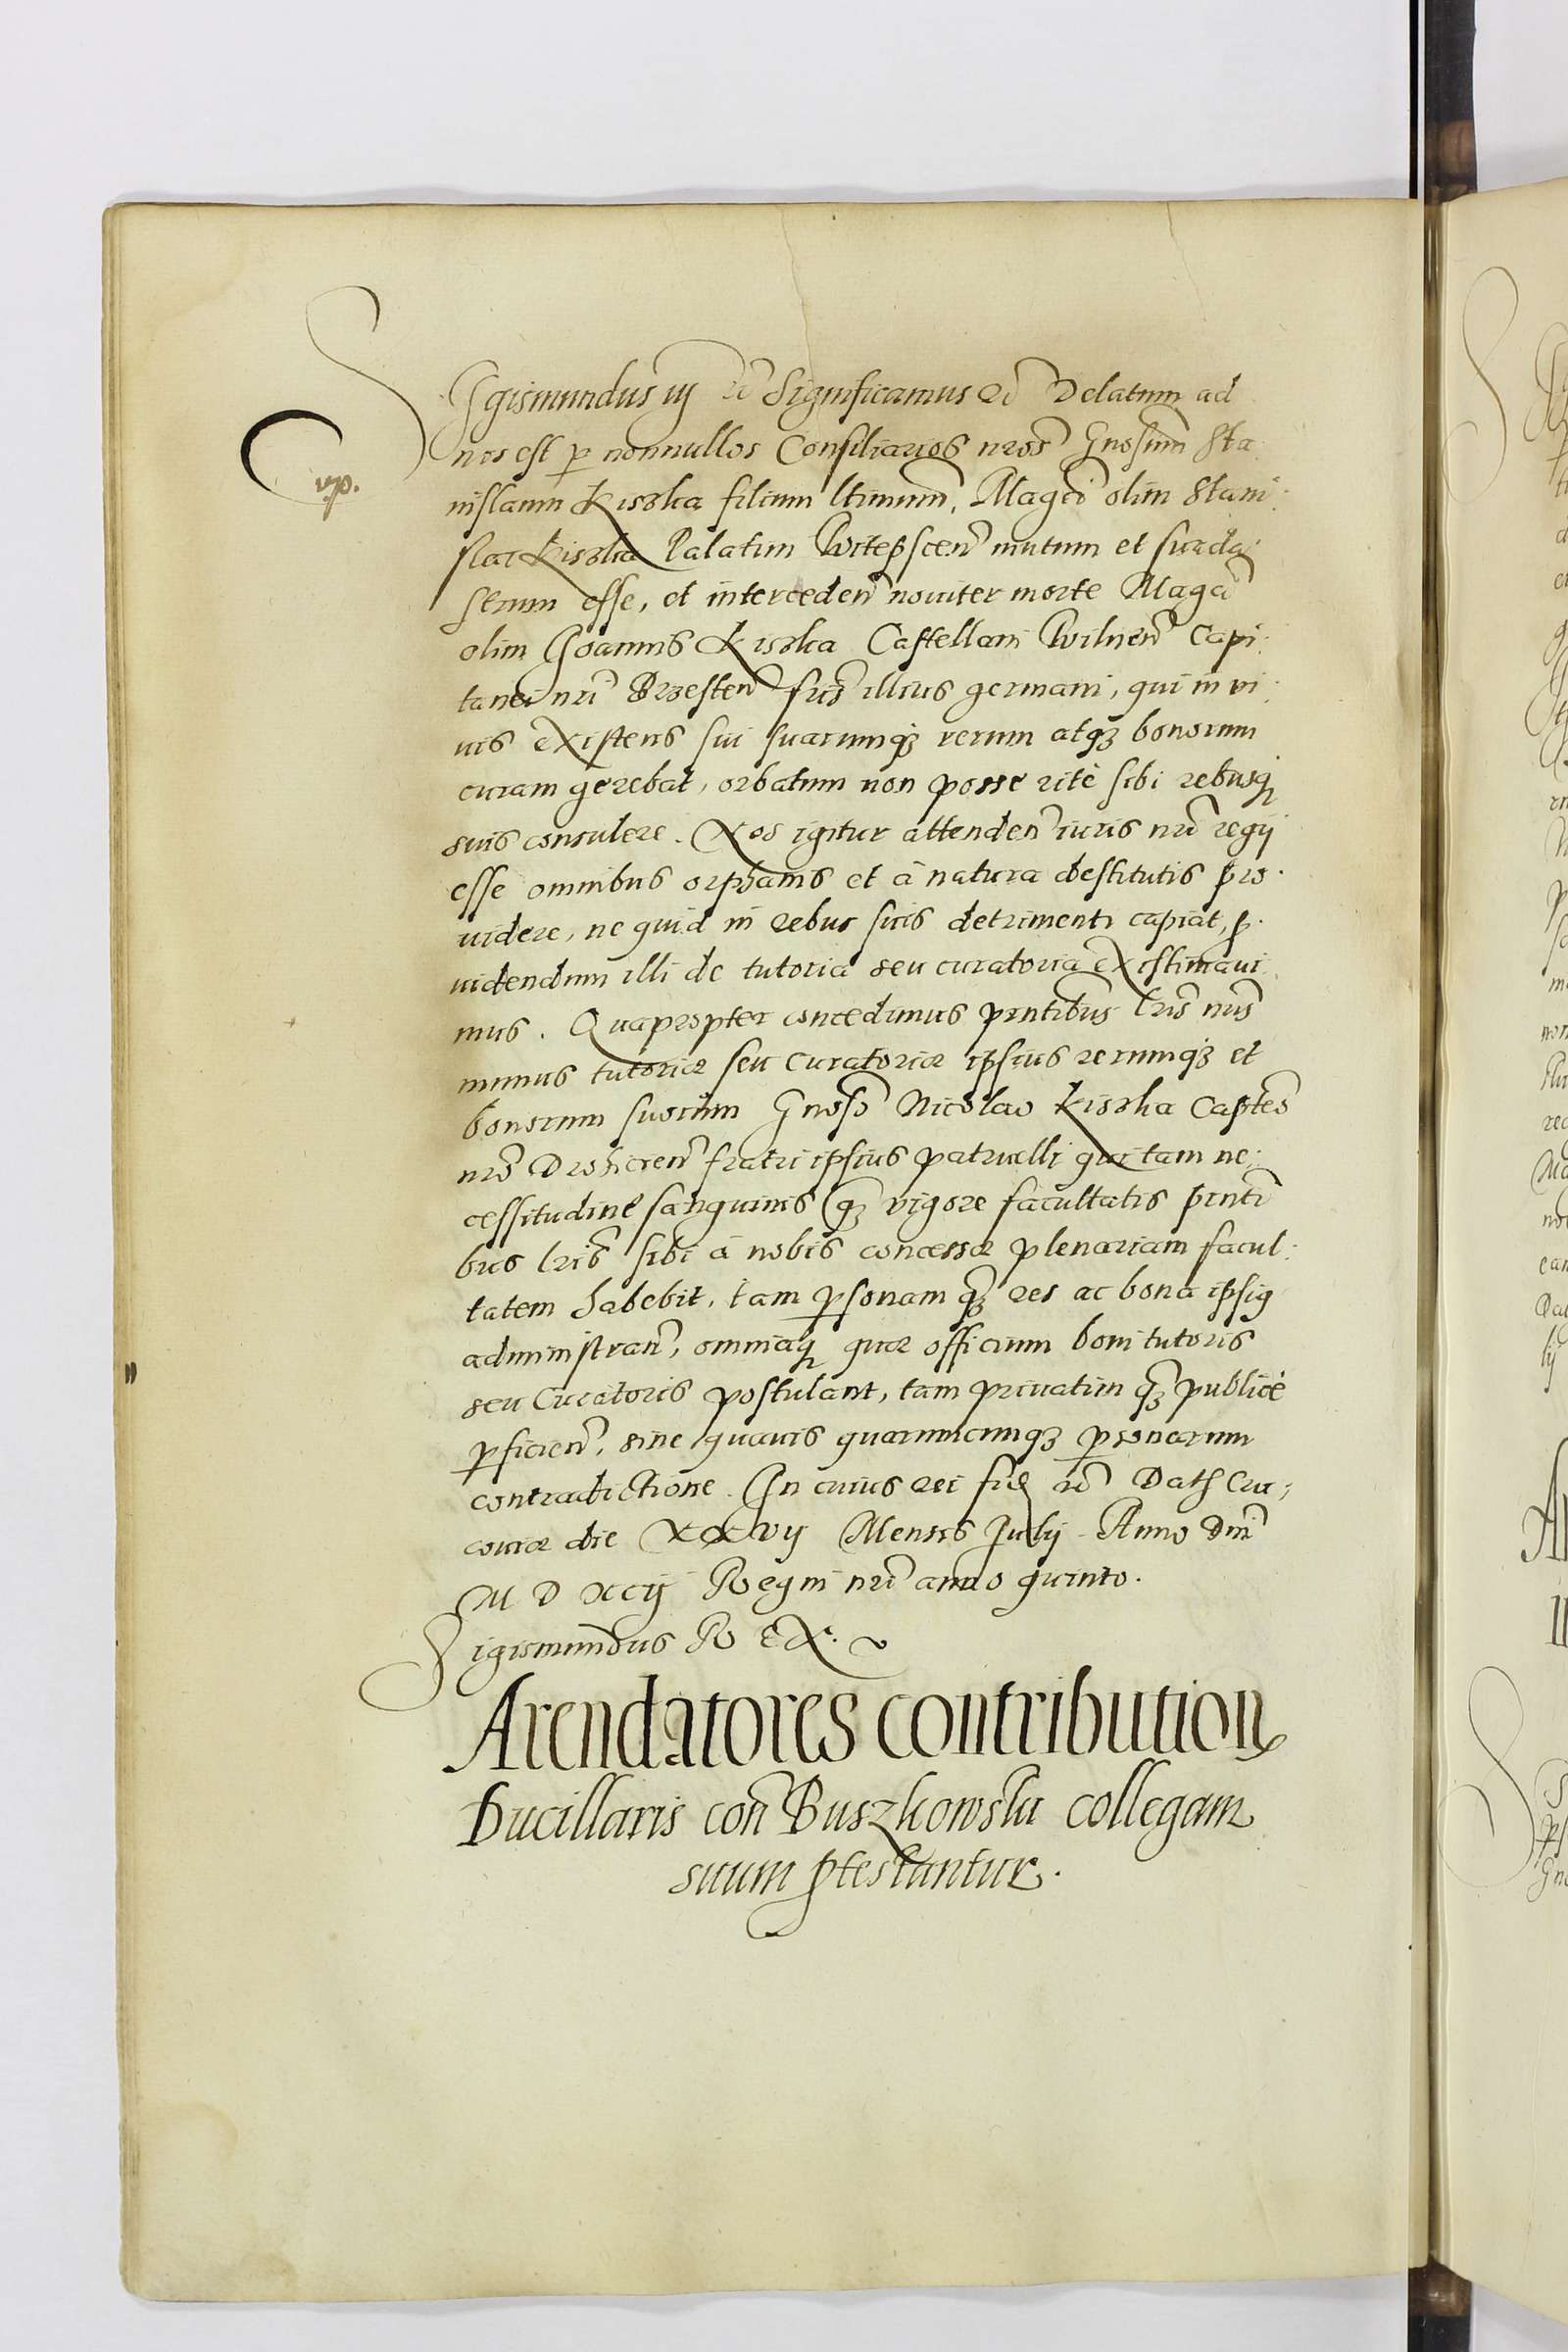 Sigismundus iij etc Significamus etc Delatum ad
nos est p nonnullos Consiliarios nros Gnosum Sta
nislaum Kiszka filium ltimum, Magci olim Stani:
slai Kiszka Palatini Witepscen mutum et surda:
strum esse, et interceden nouiter morte Magci
olim Joannis Kiszka Castellani Wilnen Capi:
tanei nri Brzesten fris illius germani, qui in vi:
uis existens sui suarumq3 rerum atq3 bonorum
curam gerebat, orbatum non posse ritè sibi rebusq
suis consulere. Nos igitur attenden iuris nri regij
esse omnibus orphanis et à natura destitutis pro.
uidere, ne quid in rebus suis detrimenti capiat, p.
uidendum illi de tutoria seu curatoria existimaui
mus. Quapropter concedimus pntibus lris nris
munus tutoriæ seu Curatoriæ ipsius rerumq3 et
bonorum suorum Gnoso Nicolao Kiszka Capteo
nro Drohicien fratri ipsius patrueli qui tam ne:
cessitudine sanguinis q3 vigore facultatis pnti
bus lris sibi à nobis concessæ plenariam facul:
tatem habebit, tam psonam q3 res ac bona ipsig
administran, omniaq quæ officium boni tutoris
seu Curatoris postulant, tam priuatim q3 publicè
pficien, sine quauis quarumcunq3 psonarum
contradictione. In cuius rei fid etc Dat Cra;
couiæ die XXVij Mensis Julij Anno Dni
M D XCij Regni nri anno quinto.
Sigismundus Rex.
Arendatores contribution
Ducillaris con Buszkowski collegam
suum ptestantur.